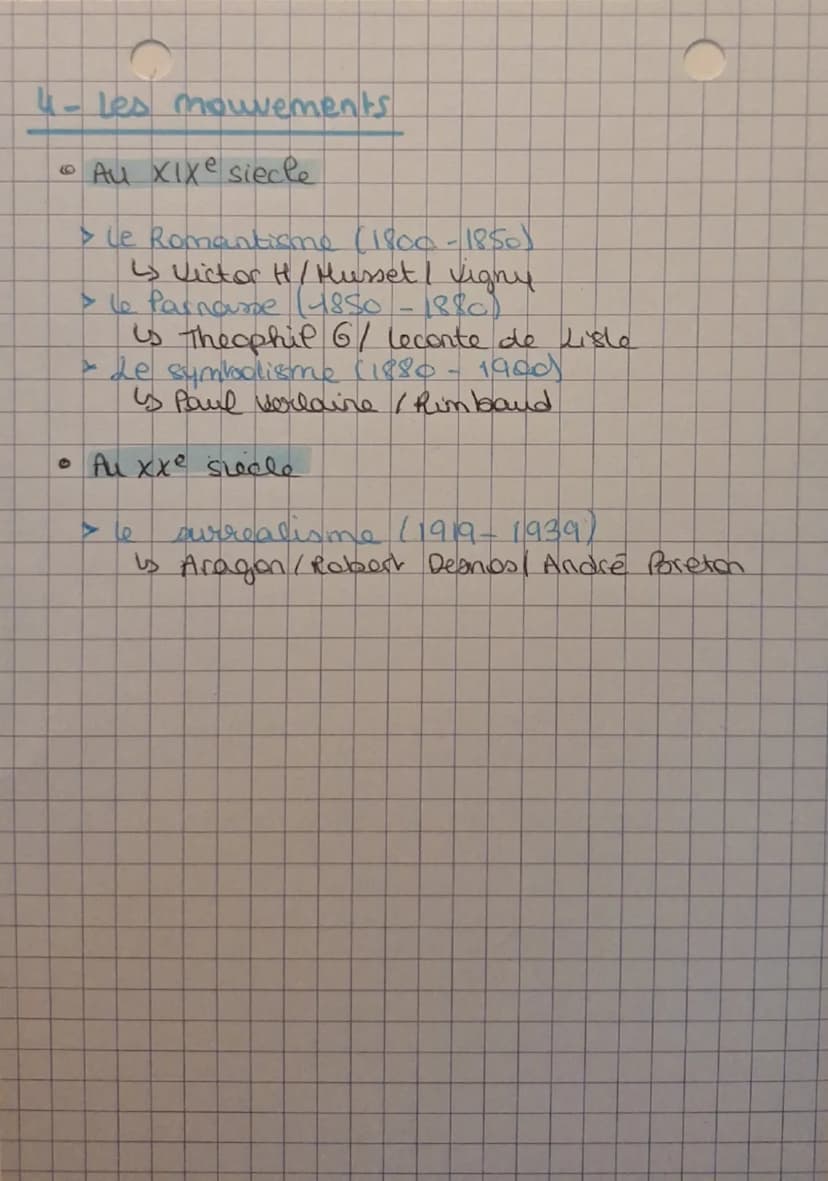 4- Les mouvements
• Au XIXe siecle
> Le Romantisme (1800-1850)
↳ Victor H / Musset / Vigny
> Le Parnasse (1850 - 1880)
↳ Theophil G / Leconte de Lisle
> Le symbolisme (1880 - 1900)
↳ Paul Verlaine / Rimbaud
• Au XXe siecle
> le surrealisme (1919- 1939)
↳ Aragon / Robert Desnos / André Breton